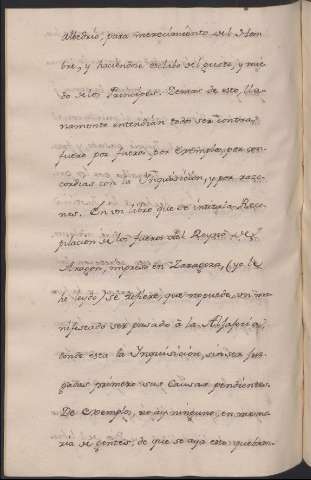 Albedrío, para menosciamiento del Hom
bre, y haciendose esclabo del gusto, y mie
do de los Principes. Demas de esto, lla
namente entendian todos ser contra,
fuero por fueros, por exemplos, por con
cordias con la Inquisición, y por razo
nes. En vn libro que se intitula Reco
pilacion de los fueros del Reyno de
Aragon, impreso en Zaragoza, (yo le
he leydo) se refiere que no puede, vn ma
nifestado ser pasado à la Alfaferia,
donde esta la Inquisicion, sin ser juz
gadas primero sus Causas pendientes.
De exemplo, no ay ninguno, en memo
ria de gentes, de que se aya esto quebran